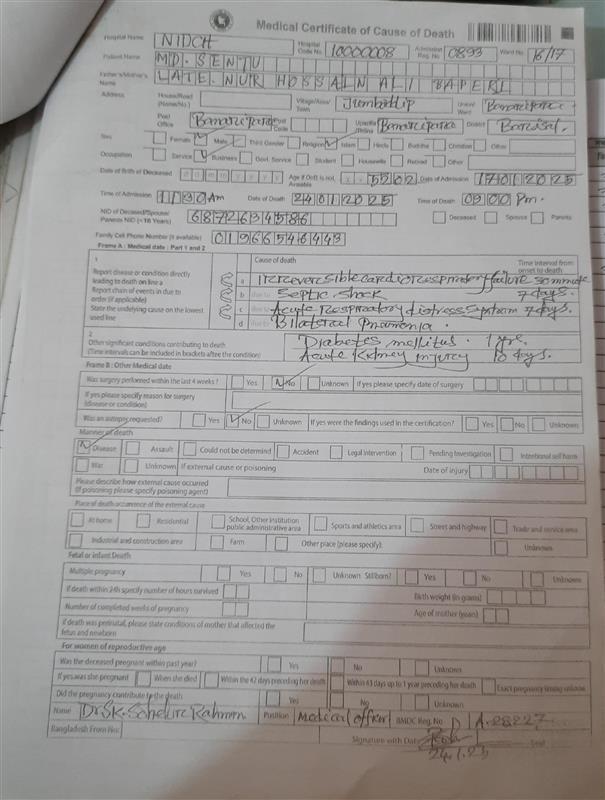 Medical Certificate of Cause of Death
Hospital Name NIDCH Hospital Code No. 10000008 Admission Reg. No 0893 Ward No 16/17
Patient Name MD. SENTU
Father's/Mother's Name LATE. NUR HOSSAIN ALI BAPERI
Address House/Road (Name/No.) Village/Area/Town Jumbodip Union/Ward
Post Office Post Code Upazila/Thana Banaripara District Barisal.
Sex Female Male Third Gender Religion Islam Hindu Buddha Christian Other
Occupation Service Business Govt. Service Student Housewife Retired Other
Date of Birth of Deceased Age if DoB is not Available 55 02 Date of Admission 17012025
Time of Admission 1130 Am Date of Death 24012025 Time of Death 0900 Pm.
NID of Deceased/Spouse/Parents NID (<18 Years) 6872634586 Deceased Spouse Parents
Family Cell Phone Number (is available) 01966546443
Frame A : Medical date : Part 1 and 2
1 Cause of death Time interval from onset to death
Report disease or condition directly leading to death on line a
Report chain of events in due to order (if applicable)
State the underlying cause on the lowest used line
a Irreversible cardiorespiratory failure 30 minute
b due to Septic shock 7 days.
c due to Acute Respiratory distress System 7 days.
d due to Bilateral Pneumonia.
2 Other significant conditions contributing to death (Time intervals can be included in brackets after the condition)
Diabetes mellitus. 1 yrs.
Acute Kidney injury 10 days.
Frame B : Other Medical date
Was surgery performed within the last 4 weeks ? Yes No Unknown If yes please specify date of surgery
If yes please specify reason for surgery (disease or condition)
Was an autopsy requested? Yes No Unknown If yes were the findings used in the certification? Yes No Unknown
Manner of death
Disease Assault Could not be determind Accident Legal intervention Pending Investigation Intentional self harm
War Unknown If external cause or poisoning Date of injury
Please describe how external cause occurred (If poisoning please specify poisoning agent)
Place of death occurrence of the external cause
At home Residential School, Other institution public administrative area Sports and athletics area Street and highway Trade and service area
Industrial and construction area Farm Other place (please specify): Unknown
Fetal or infant Death
Multiple pregnancy Yes No Unknown Stillborn? Yes No Unknown
If death within 24h specify number of hours survived Birth weight (in grams)
Number of completed weeks of pregnancy Age of mother (years)
If death was perinatal, please state conditions of mother that affected the fetus and newborn
For women of reproductive age
Was the deceased pregnant within past year? Yes No Unknown
If yes was she pregnant When she died Within the 42 days preceding her death Within 43 days up to 1 year preceding her death Exact pregnancy timing unknown
Did the pregnancy contribute to the death Yes No Unknown
Name Dr Sk. Sahelur Rahman Position Medical officer BMDC Reg. No A-28227
Bangladesh From No: Signature with Date Seal